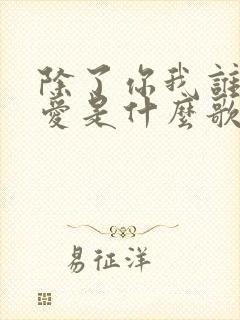 除了你我誰
愛是什麼歌
易征洋